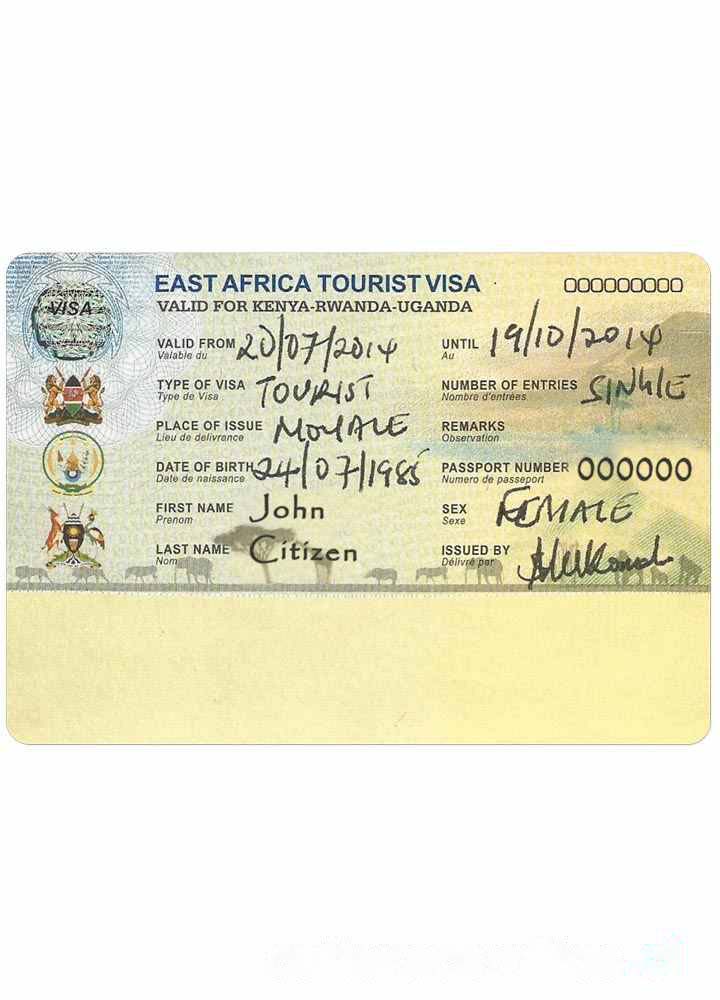 EAST AFRICA TOURIST VISA 000000000
VISA
VALID FOR KENYA-RWANDA-UGANDA
VALID FROM 20/07/2014 UNTIL 19/10/2014
Valable du Au
TYPE OF VISA TOURIST NUMBER OF ENTRIES SINGLE
Type de Visa Nombre d'entrées
PLACE OF ISSUE MOYALE REMARKS
Lieu de delivrance Observation
DATE OF BIRTH 24/07/1985 PASSPORT NUMBER 000000
Date de naissance Numero de passeport
FIRST NAME John SEX FEMALE
Prenom Sexe
LAST NAME Citizen ISSUED BY
Nom Délivré par